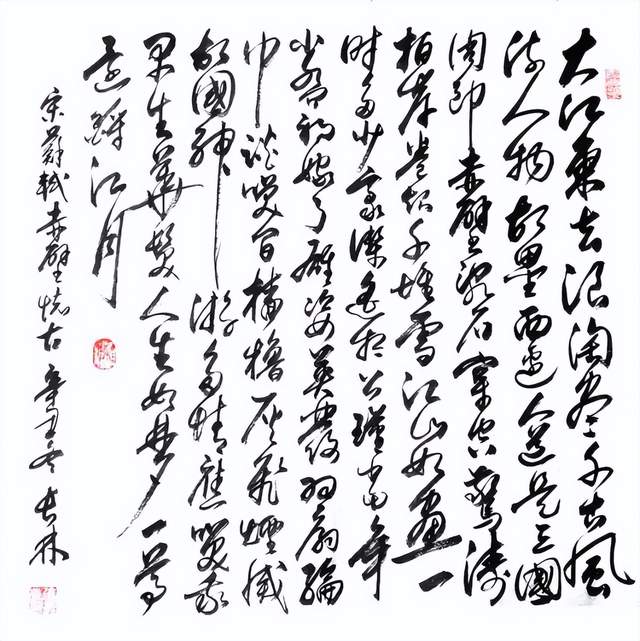 大江東去浪淘尽千古風
流人物故壘西邊人道是三國
周郎赤壁亂石穿空驚濤
拍岸卷起千堆雪江山如畫一
時多少豪傑遙想公瑾當年
小喬初嫁了雄姿英發羽扇綸
巾談笑間檣櫓灰飛煙滅
故國神游多情應笑我
早生華髮人生如夢一尊
還酹江月
宋蘇軾赤壁懷古 辛丑冬 長林